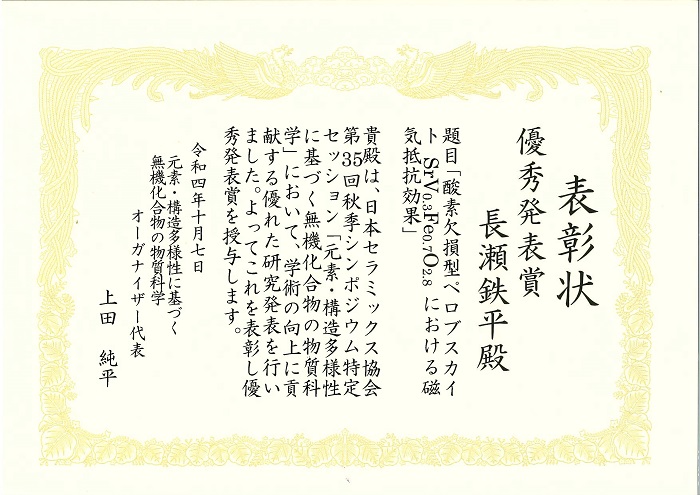 表彰状
優秀発表賞
長瀬鉄平殿
題目「酸素欠損型ペロブスカイ
ト SrV0.3Fe0.7O2.8 における磁
気抵抗効果」
貴殿は、日本セラミックス協会
第35回秋季シンポジウム特定
セッション「元素・構造多様性
に基づく無機化合物の物質科
学」において、学術の向上に貢
献する優れた研究発表を行い
ました。よってこれを表彰し優
秀発表賞を授与します。
令和四年十月七日
元素・構造多様性に基づく
無機化合物の物質科学
オーガナイザー代表
上田 純平